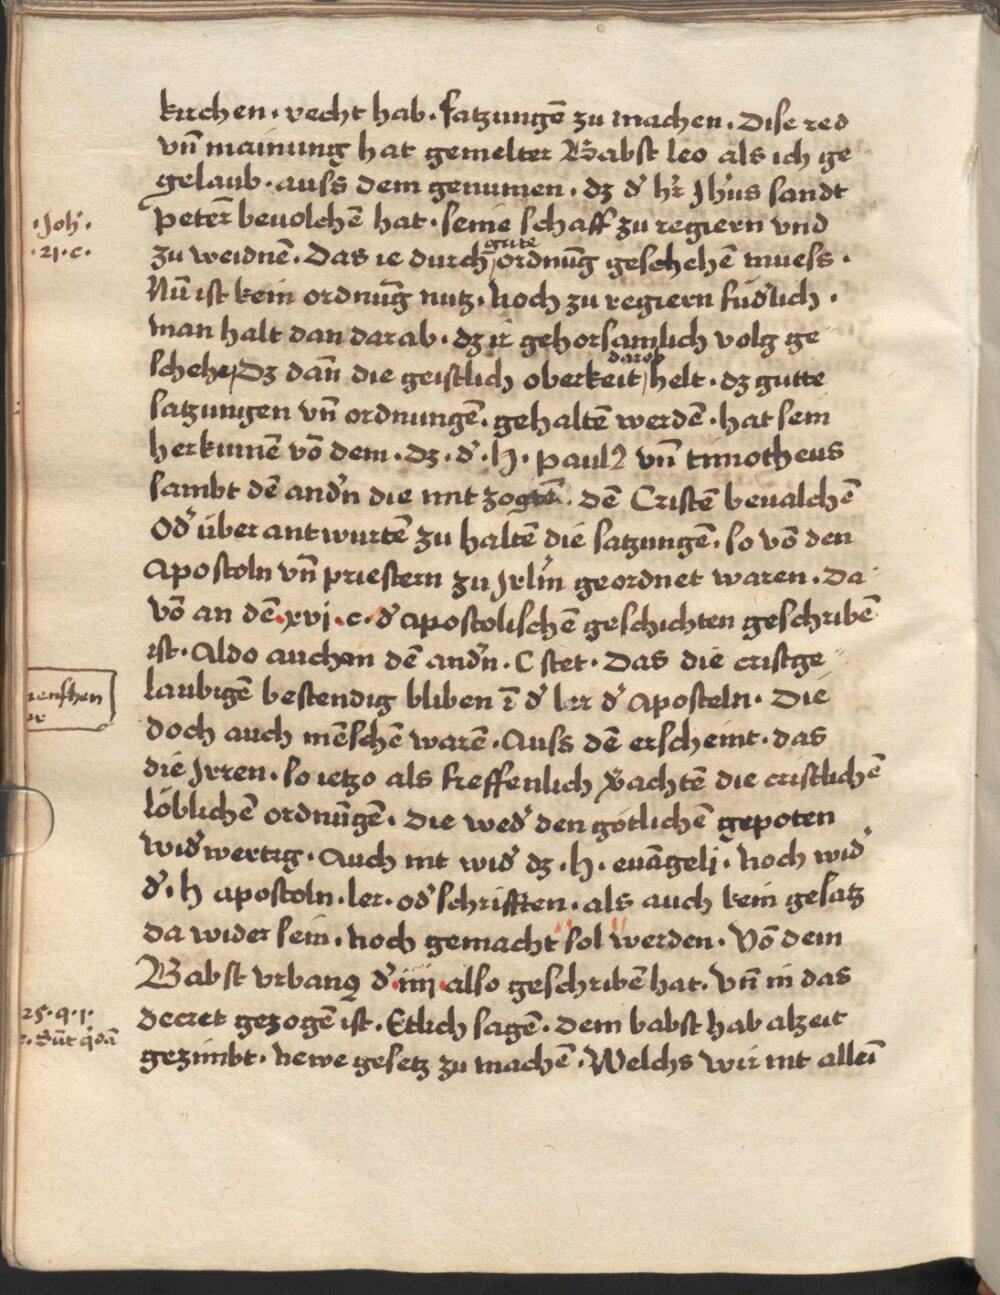 kirchen. recht hab. satzungē zu machen. Dise red
vn̄ mainung hat gemelter Babst leo als ich ge
gelaub. auss dem genumen. dz d' hr̄ Jh'us sandt
.Joh'.
.21.c.
peter̄ beuolchē hat. seine schaff zu regiern vnd
gute
zu weidnē. Das ie durch ordnūg geschehē muess.
Nū ist kein ordnūg nutz. noch zu regiern fudlich.
man halt dan darab. dz ir gehorsamlich volg ge
darob
schehe, Dz dañ die geistlich oberkeit helt. dz gutte
satzungen vn̄ ordnungē. gehaltē werdē. hat sein
herkumē vō dem. dz. d'. H. paul9 vn̄ timotheus
sambt dē and'n die mit zogtē. dē Cristē beualchē
Od' überantwurtē zu haltē die satzungē. so vō den
Apostoln vn̄ priestern zu Jrl'm geordnet waren. Da
vō an dē.xvj.c.d' Apostolischē geschichten geschribē
ist. Aldo auch an dē and'n. C stet. Das die cristge
menschen
laubigē bestendig bliben ī d' ler d' Aposteln. Die
doch auch mēschē warē. Auss dē erscheint. das
die Jrren. so ietzo als freffenlich v'achtē die cristlichē
löblichē ordnūgē. Die wed' den götlichē gepoten
wid'wertig. Auch nit wid' dz. h. euāgelj. Noch wid'
d'. h apostoln. ler. od' schrifften. als auch kein gesatz
da wider sein. noch gemacht sol werden. Vō dem
Babst vrban9 d'.iiij.also geschribē hat. vn̄ in das
25.q.1.
decret gezogē ist. Etlich sagē. dem babst hab alzeit
c. Sūt q'dā
gezimbt. newe gesetz zu machē. Welchs wir nit alleī